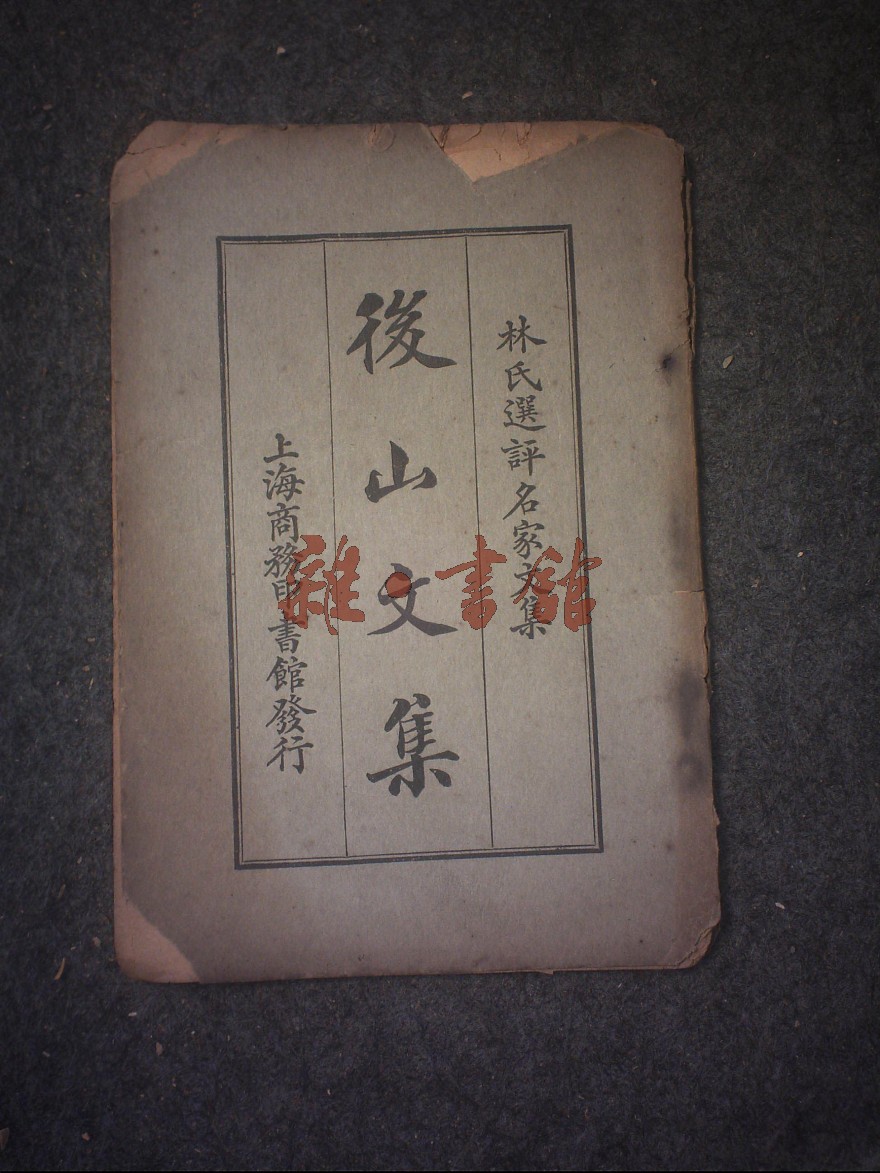 林氏選評名家文集
後山文集
上海商務印書館發行
雜·書館